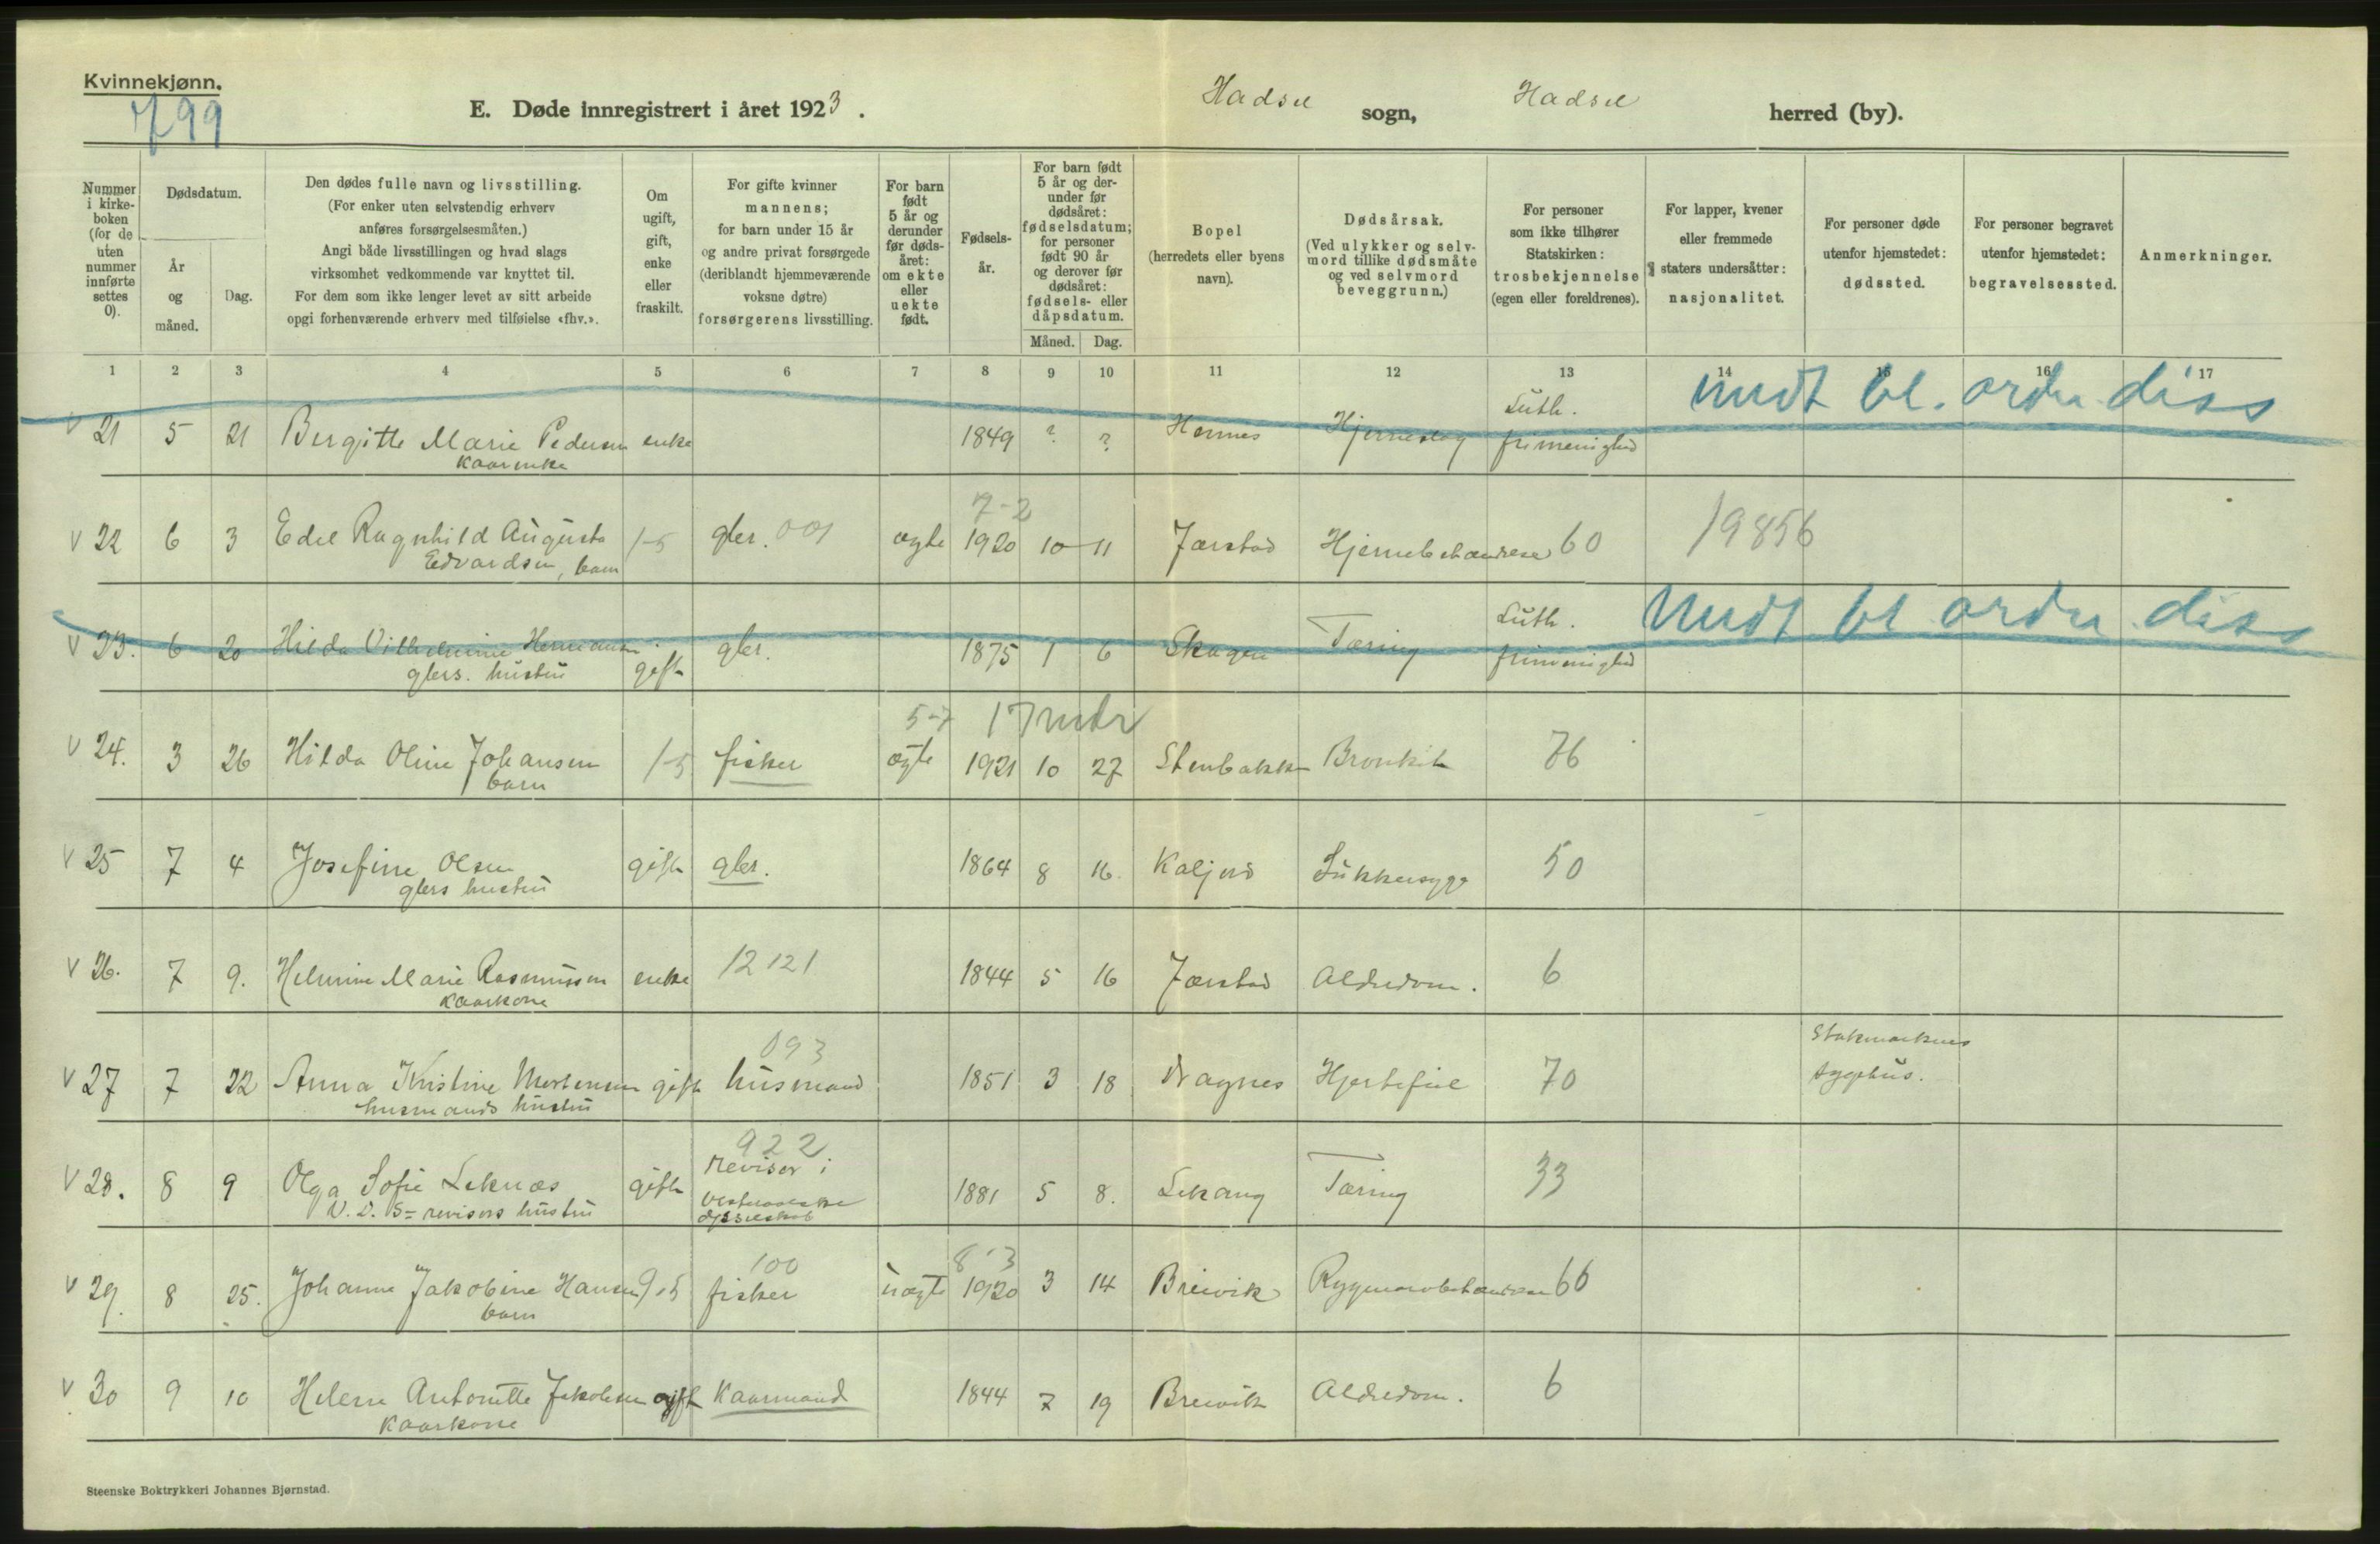 Kvinnekjønn.
799
E. Døde innregistrert i året 1923.
Hadsel sogn, Hadsel herred (by).
Nummer i kirkeboken (for de uten nummer innførte settes 0).
Dødsdatum.
År og måned.
Dag.
Den dødes fulle navn og livsstilling.
(For enker uten selvstendig erhverv
anføres forsørgelsesmåten.)
Angi både livsstillingen og hvad slags
virksomhet vedkommende var knyttet til.
For dem som ikke lenger levet av sitt arbeide
opgi forhenværende erhverv med tilføielse «fhv.».
Om ugift, gift, enke eller fraskilt.
For gifte kvinner
mannens;
for barn under 15 år
og andre privat forsørgede
(deriblandt hjemmeværende
voksne døtre)
forsørgerens livsstilling.
For barn født 5 år og derunder før dødsåret: om ekte eller uekte født.
Fødselsår.
For barn født 5 år og derunder før dødsåret: fødselsdatum; for personer født 90 år og derover før dødsåret: fødsels- eller dåpsdatum.
Måned. Dag.
Bopel
(herredets eller byens navn).
Dødsårsak.
(Ved ulykker og selvmord tillike dødsmåte og ved selvmord beveggrunn.)
For personer
som ikke tilhører
Statskirken:
trosbekjennelse
(egen eller foreldrenes).
For lapper, kvener
eller fremmede
staters undersåtter:
nasjonalitet.
For personer døde
utenfor hjemstedet:
dødssted.
For personer begravet
utenfor hjemstedet:
begravelsessted.
Anmerkninger.
1 2 3 4 5 6 7 8 9 10 11 12 13 14 15 16 17
bl. andre diss
V 21 5 21 Bergitte Marie Pedersen enke 1849 ? ? Hennes Hjerneslag Luth. frimenighed
Kaarenke
7-2
V 22 6 3 Edel Ragnhild Augusta 1-5 gbr. 001 ægte 1920 10 11 Jærstad 60 19856
Edvardsen, barn
bl andre diss
V 23. 6 20 Hilda Vilhelmine Hermansen gift gbr. 1875 1 6 Skagen Tæring Luth. frimenighed
gbrs. hustru
5-7 17 mdr
V 24. 3 26 Hilda Oline Johansen 1-5 fisker ægte 1921 10 27 Stenbakken Bronkit 76
barn
V 25 7 4 Josefine Olsen gift gbr. 1864 8 16. Kaljord Sukkersyge 50
gbrs hustru
V 26. 7 9. Helmine Marie Rasmussen enke 12121 1844 5 16 Jærstad Alderdom. 6
Kaarkone
093
V 27 7 22 Anna Kristine Mortensen gift husmand 1851 3 18 Dragnes Hjertefeil 70 Stokmarknes sygehus.
husmands hustru
922
V 28. 8 9 Olga Sofie Leknæs gift revisor i Vesteraalske D/S selskab 1881 5 8. Lekang Tæring 33
V. D. S= revisors hustru
100 8-3
V 29. 8 25. Johanne Jakobine Hansen fisker uægte 1920 3 14 Breivik 66
barn
V 30 9 10 Helene Antonette Jakobsen gift Kaarmand 1844 7 19 Breivik Alderdom. 6
Kaarkone
Steenske Boktrykkeri Johannes Bjørnstad.